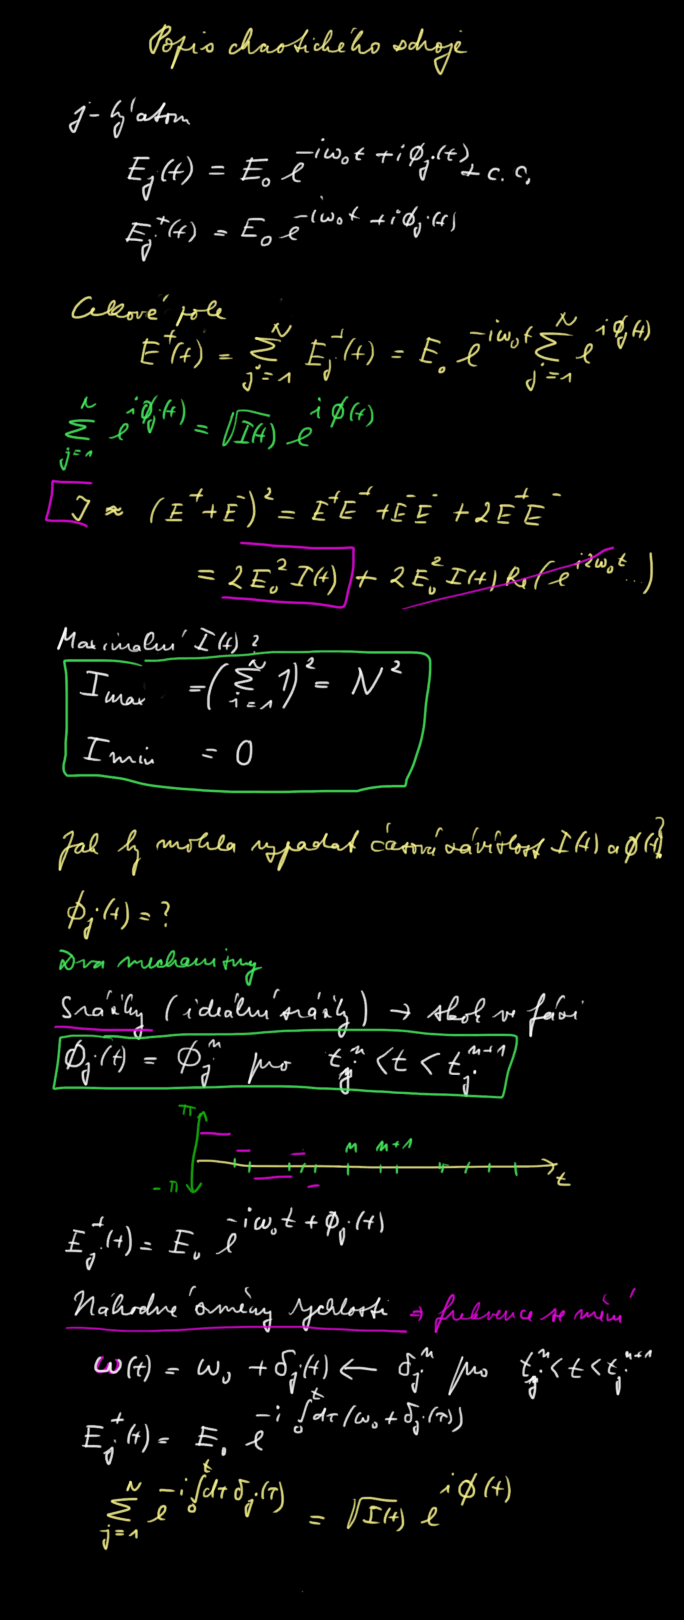 Popis chaotického zdroje
j-tý atom
E_j(t) = E_0 e^{-iω_0t + iϕ_j(t)} + c.c.
E_j^+(t) = E_0 e^{-iω_0t + iϕ_j(t)}
Celkové pole
E^+(t) = \sum_{j=1}^{N} E_j^+(t) = E_0 e^{-iω_0t} \sum_{j=1}^{N} e^{iϕ_j(t)}
\sum_{j=1}^{N} e^{iϕ_j(t)} = \sqrt{I(t)} e^{iϕ(t)}
J ≈ (E^+ + E^-)^2 = E^+E^+ + E^-E^- + 2E^+E^-
= 2E_0^2 I(t) + 2E_0^2 I(t) Re(e^{i2ω_0t}...)
Maximální I(t)?
I_{max} = (\sum_{i=1}^{N} 1)^2 = N^2
I_{min} = 0
Jak by mohla vypadat časová závislost I(t) a ϕ(t)?
ϕ_j(t) = ?
Dva mechanizmy
Srážky (ideální srážky) → skok ve fázi
ϕ_j(t) = ϕ_j^n pro t_j^n < t < t_j^{n+1}
π
n n+1
t
-π
E_j^+(t) = E_0 e^{-iω_0t + ϕ_j(t)}
Náhodné změny rychlosti → frekvence se mění
ω(t) = ω_0 + δ_j(t) ← δ_j^n pro t_j^n < t < t_j^{n+1}
E_j^+(t) = E_0 e^{-i\int_0^t dτ(ω_0 + δ_j(τ))}
\sum_{j=1}^{N} e^{-i\int_0^t dτ δ_j(τ)} = \sqrt{I(t)} e^{iϕ(t)}